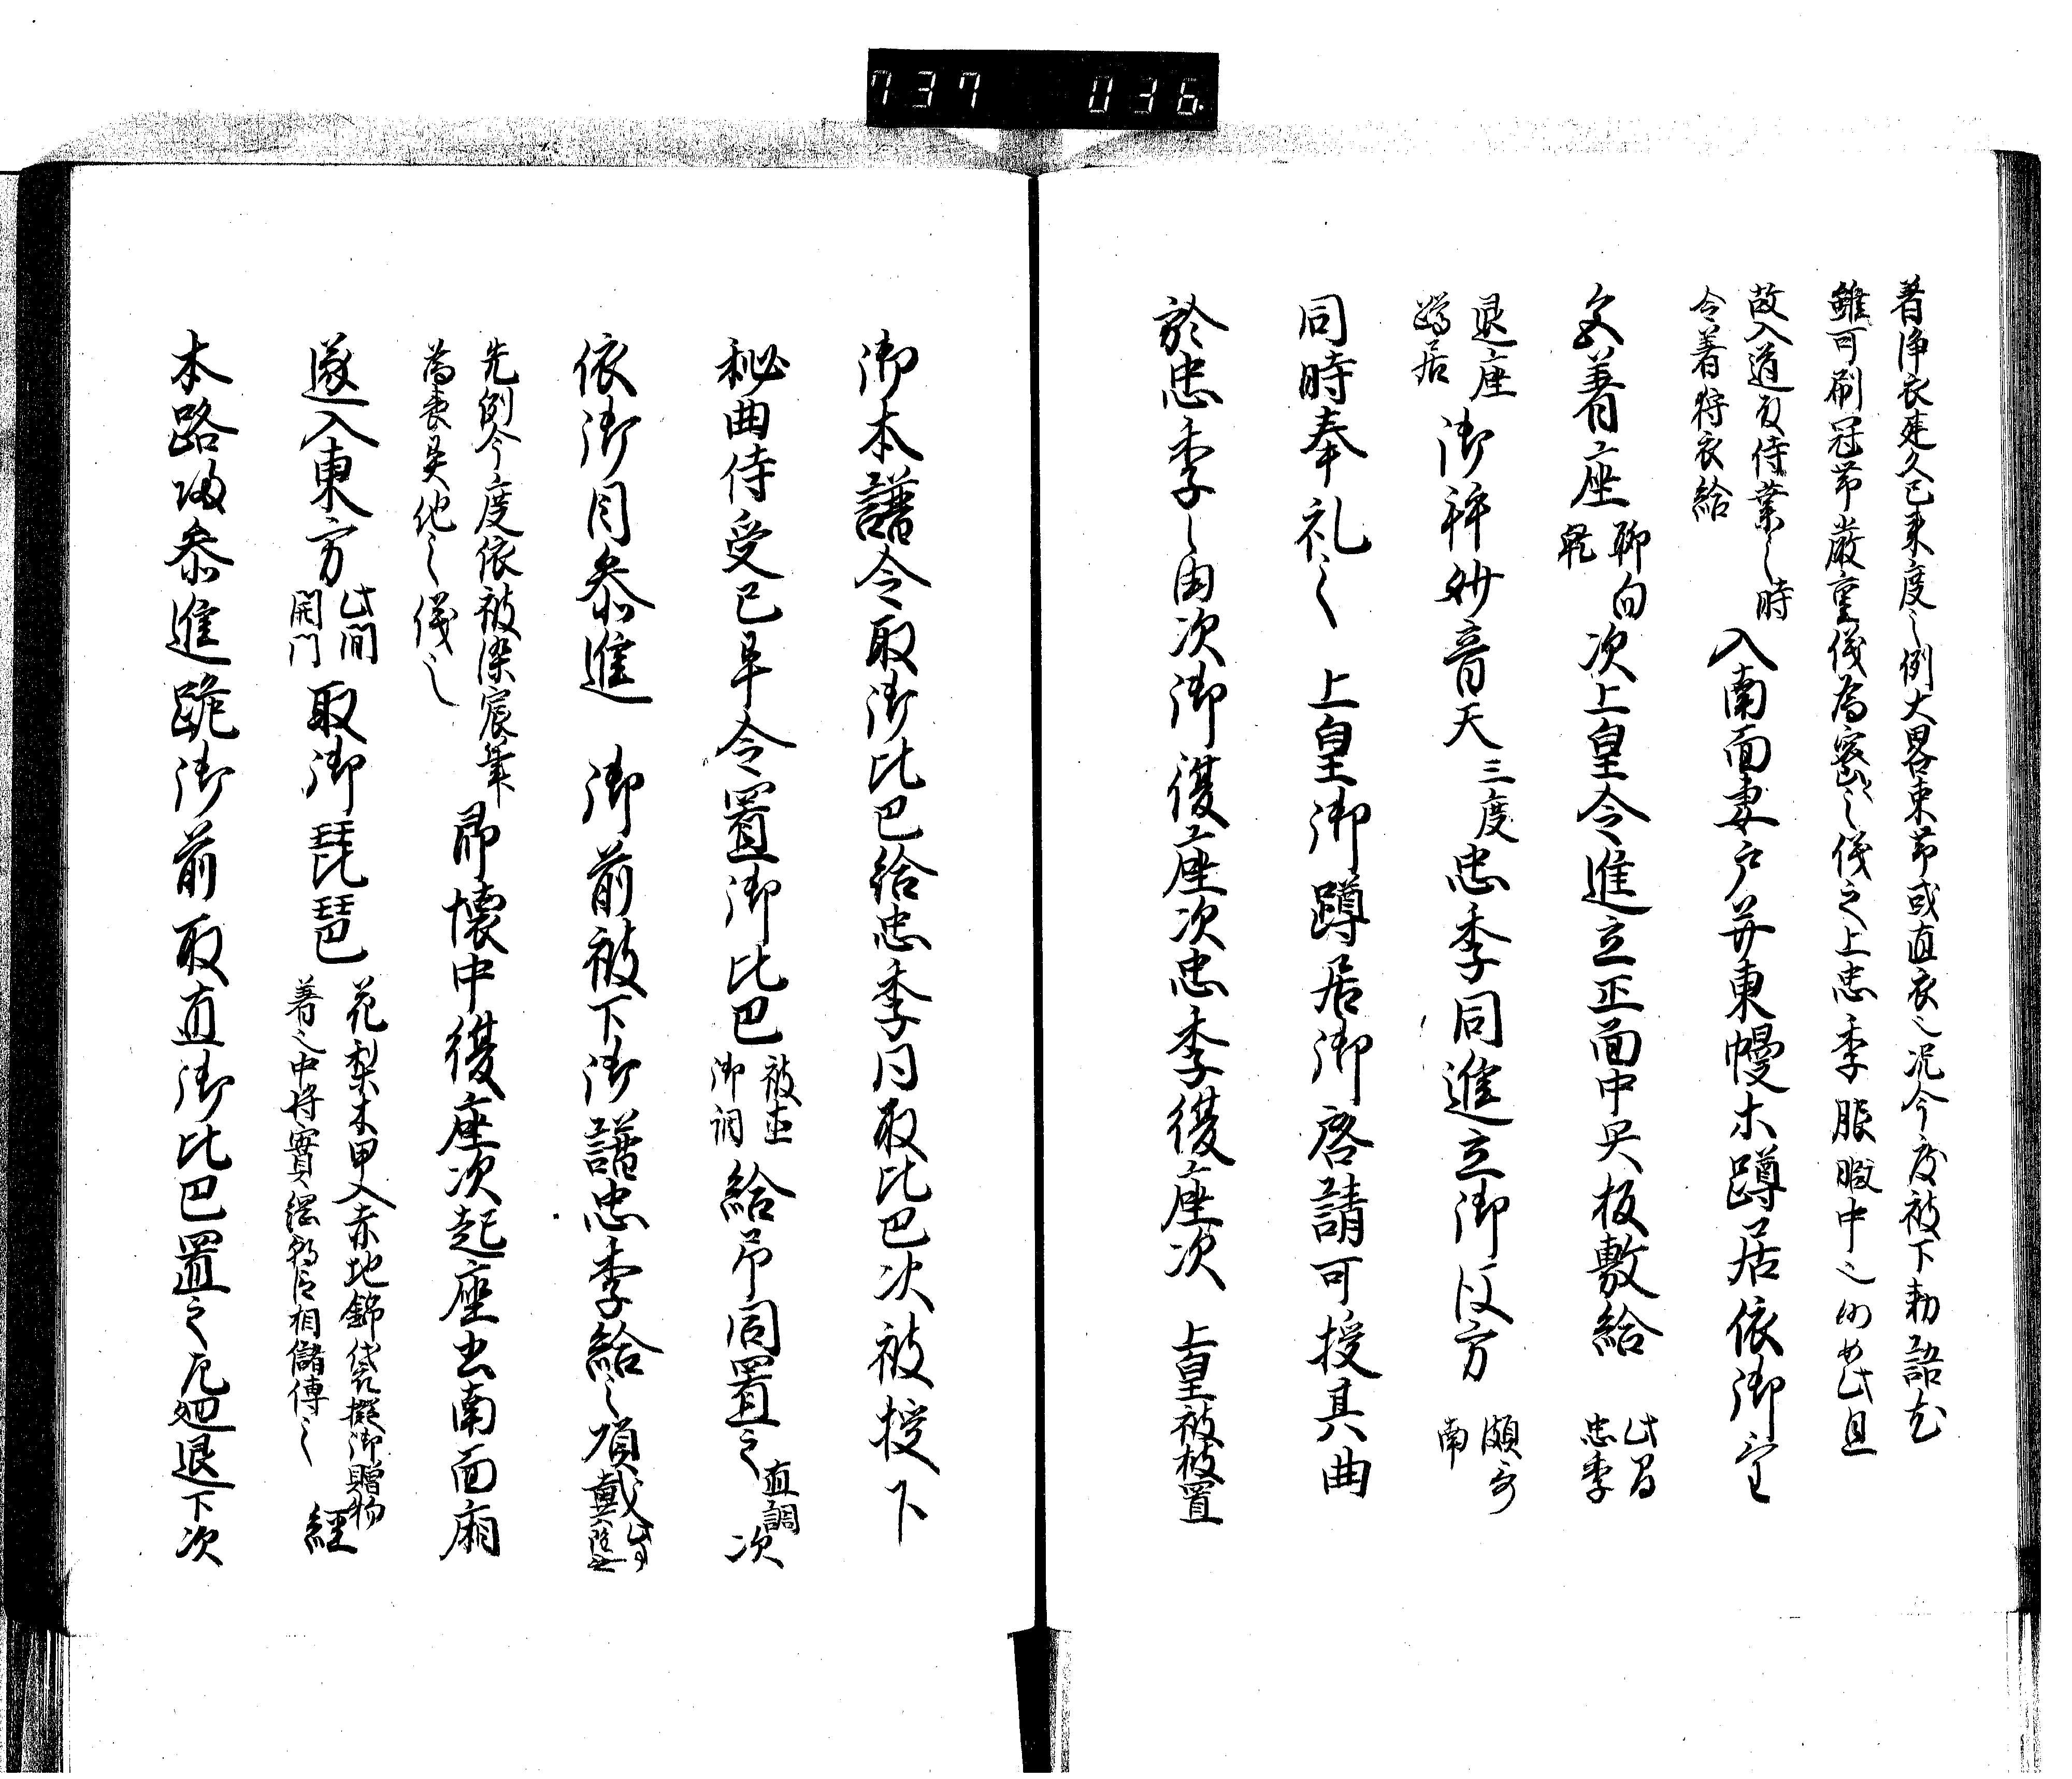 737 036
着浄衣建久已来度之例大畧束帯或直衣之況今度被下勅語尤
雖可刷冠帯厳重儀為密々之儀之上忠季服暇中之間如此且
故入道殿侍業之時
令着狩衣給
入南面妻戸并東幔下蹲居依御気
色着座
聊向
乾
次上皇令進立正面中央板敷給
此間
忠季
退座
蹲居
御拝妙音天
三度
忠季同進立御後方
頗寄
南
同時奉礼之 上皇御蹲居御啓請可授其曲
於忠季之由次御復座次忠季復座次 上皇被披置
御本譜令取御比巴給忠季同取比巴次被授下
秘曲侍受已早令置御比巴
被止
御調
給予同置之
直調
次
依御目参進 御前被下御譜忠季給之頂戴
先例今度依被染宸筆
為表異他之儀也
即懐中復座次起座出南面廂
遂入東方
此間
開門
取御琵琶
花梨木甲入赤地錦袋擬御贈物
着之中将實綱朝臣相儲傳之
経
本路歸参進跪御前取直御比巴置之左廻退下次